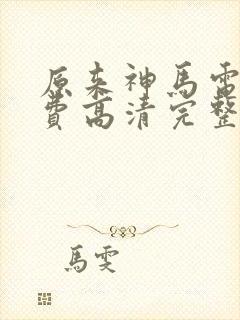 原来神馬電
費高清完整
馬雯